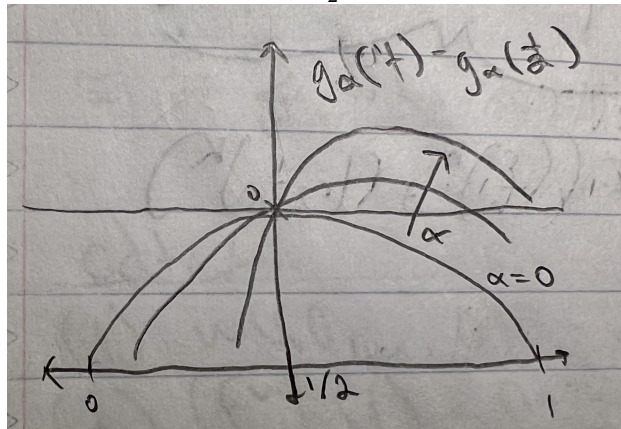 g_α(γ) - g_α(1/2)
0
α
α=0
0
1/2
1